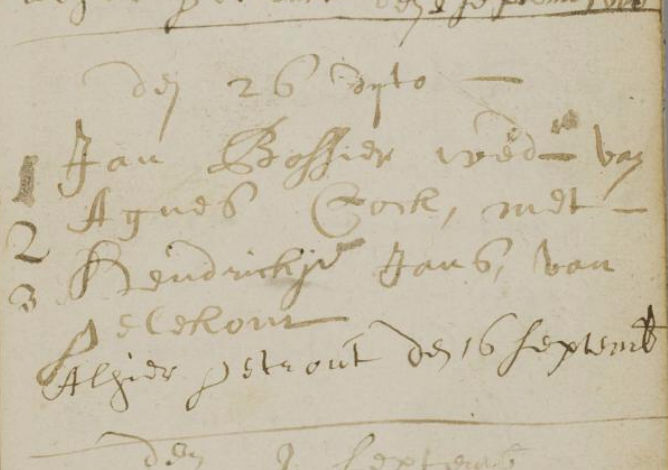 den 26 dyto
1 Jan Bossier wed– van
2 Agnes Cock, met –
3 Hendrickje Jans, van
pelekom
Alhier getrout den 16 septemb
den septemb